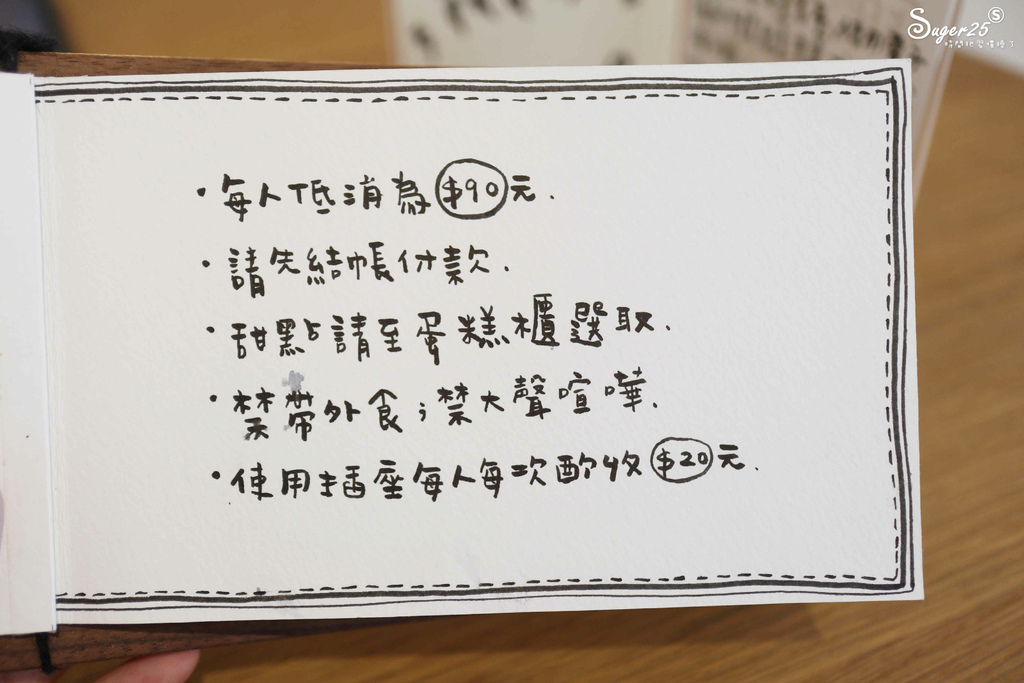 Suger25 S
時間把習慣換了
·每人低消為$90元.
·請先結帳付款.
·甜點請至蛋糕櫃選取.
·禁帶外食;禁大聲喧嘩.
·使用插座每人每次酌收$20元.